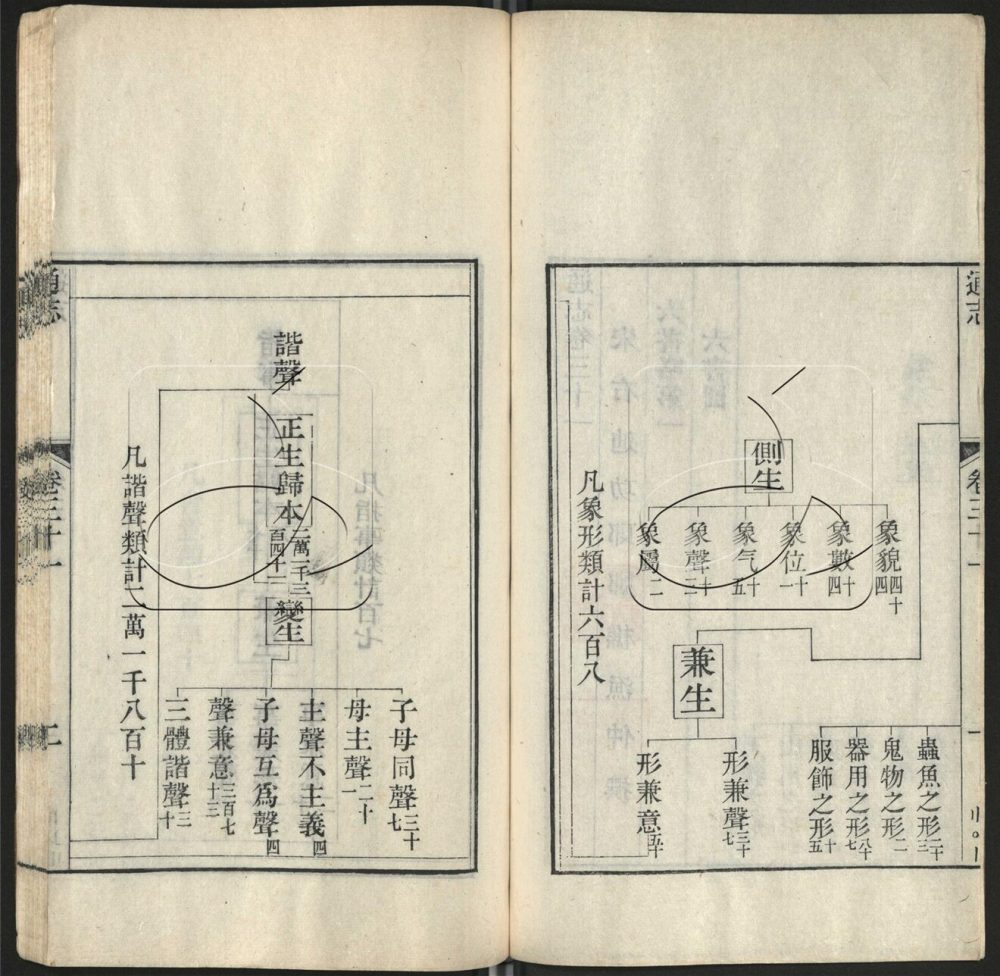 通志
卷三十一
一
蟲魚之形二十三
鬼物之形二
器用之形八十七
服飾之形十五
側生
象貌四十四
象數十四
象位十一
象气十五
象聲十二
象屬二
兼生
形兼聲三十七
形兼意五十
凡象形類計六百八
諧聲
正生歸本二萬一千三百四十一
變生
子母同聲三十七
母主聲二十一
主聲不主義四
子母互爲聲四
聲兼意三百七十三
三體諧聲三十
凡諧聲類計二萬一千八百十
通志
卷三十一
二